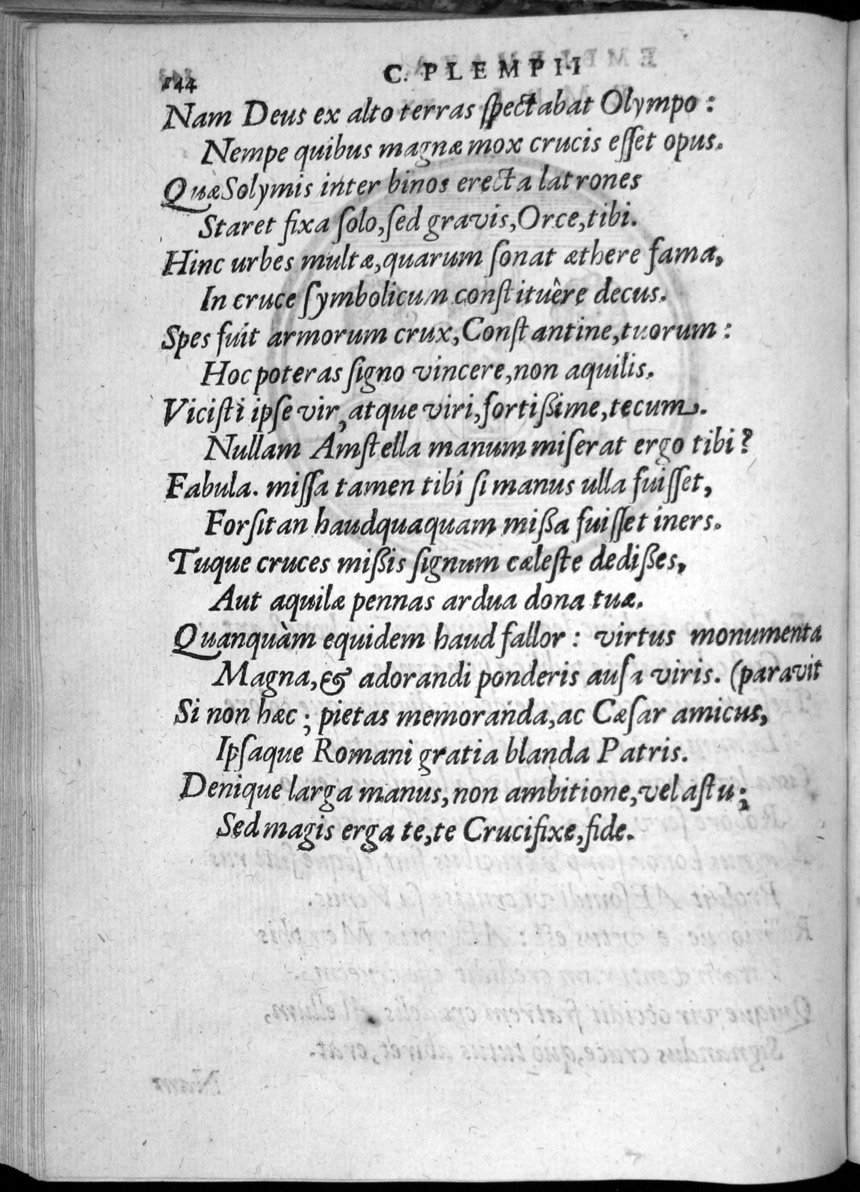 144 C. PLEMPII
Nam Deus ex alto terras ſpectabat Olympo :
Nempe quibus magnæ mox crucis eſſet opus.
Quæ Solymis inter binos erecta latrones
Staret fixa ſolo, ſed gravis, Orce, tibi.
Hinc urbes multæ, quarum ſonat æthere fama,
In cruce ſymbolicum conſtituêre decus.
Spes fuit armorum crux, Conſtantine, tuorum :
Hoc poteras ſigno vincere, non aquilis.
Viciſti ipſe vir, atque viri, fortißime, tecum.
Nullam Amſtella manum miſerat ergo tibi?
Fabula. miſſa tamen tibi ſi manus ulla fuiſſet,
Forſitan haudquaquam mißa fuiſſet iners.
Tuque cruces mißis ſignum cæleſte dedißes,
Aut aquilæ pennas ardua dona tuæ.
Quanquàm equidem haud fallor : virtus monumenta
Magna, & adorandi ponderis auſa viris. (paravit
Si non hæc ; pietas memoranda, ac Cæſar amicus,
Ipſaque Romani gratia blanda Patris.
Denique larga manus, non ambitione, vel aſtu ;
Sed magis erga te, te Crucifixe, fide.